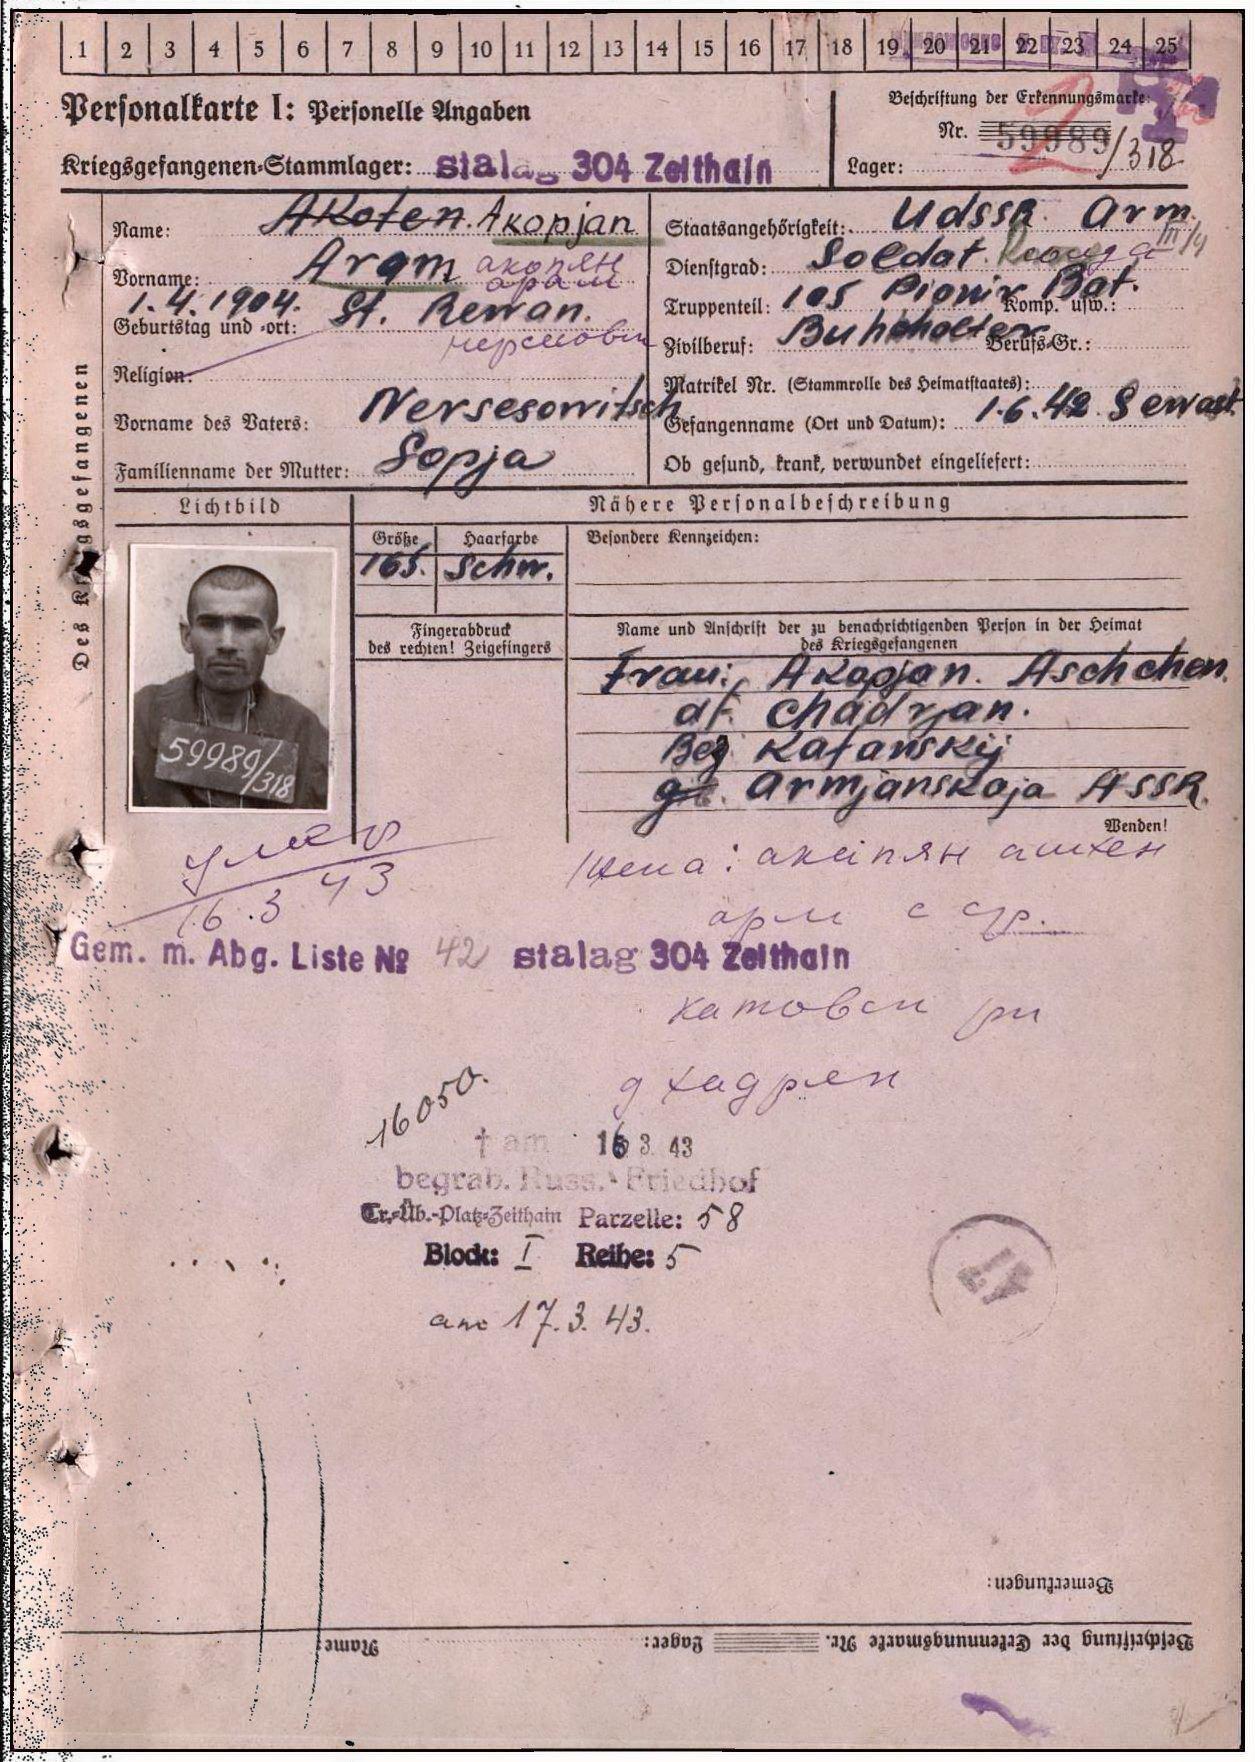 1 2 3 4 5 6 7 8 9 10 11 12 13 14 15 16 17 18 19 20 21 22 23 24 25
Personalkarte I: Personelle Angaben
Beschriftung der Erkennungsmarke
Nr. 59989/318
Kriegsgefangenen-Stammlager: Stalag 304 Zeithain
Lager:
Des Kriegsgefangenen
Name: Akoten. Akopjan
Vorname: Aram акопян
арам
1.4.1904. St. Rewan.
Geburtstag und -ort:
Religion:
Vorname des Vaters: Nersesowitsch
Familienname der Mutter: Sopja
Staatsangehörigkeit: UdSSR Arm.
Dienstgrad: Soldat.
Truppenteil: 105 Pionir Bat. Komp. usw.:
Zivilberuf: Buhhholter Berufs-Gr.:
Matrikel Nr. (Stammrolle des Heimatstaates):
Gefangenname (Ort und Datum): 1.6.42 Sewast.
Ob gesund, krank, verwundet eingeliefert:
Lichtbild
Nähere Personalbeschreibung
Größe Haarfarbe Besondere Kennzeichen:
165. Schw.
Fingerabdruck
des rechten! Zeigefingers
Name und Anschrift der zu benachrichtigenden Person in der Heimat
des Kriegsgefangenen
Frau: Akopjan. Aschchen.
df. Chadrjan.
Bez Kafanskij
Armjanskaja ASSR.
59989/318
Wenden!
умер
16.3 43
Жена: акопян ашхен
арм с ср.
Gem. m. Abg. Liste № 42 Stalag 304 Zeithain
д хадрен
16050.
† am 16 3. 43
begrab. Russ. Friedhof
Tr.-Üb.-Platz-Zeithain Parzelle: 58
Block: I Reihe: 5
17. 3. 43.
Bemerkungen:
Beschriftung der Erkennungsmarke Nr. Lager: Name: